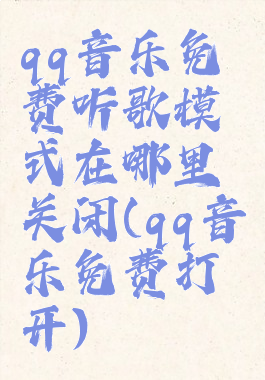 qq音乐免
费听歌模
式在哪里
关闭(qq音
乐免费打
开)